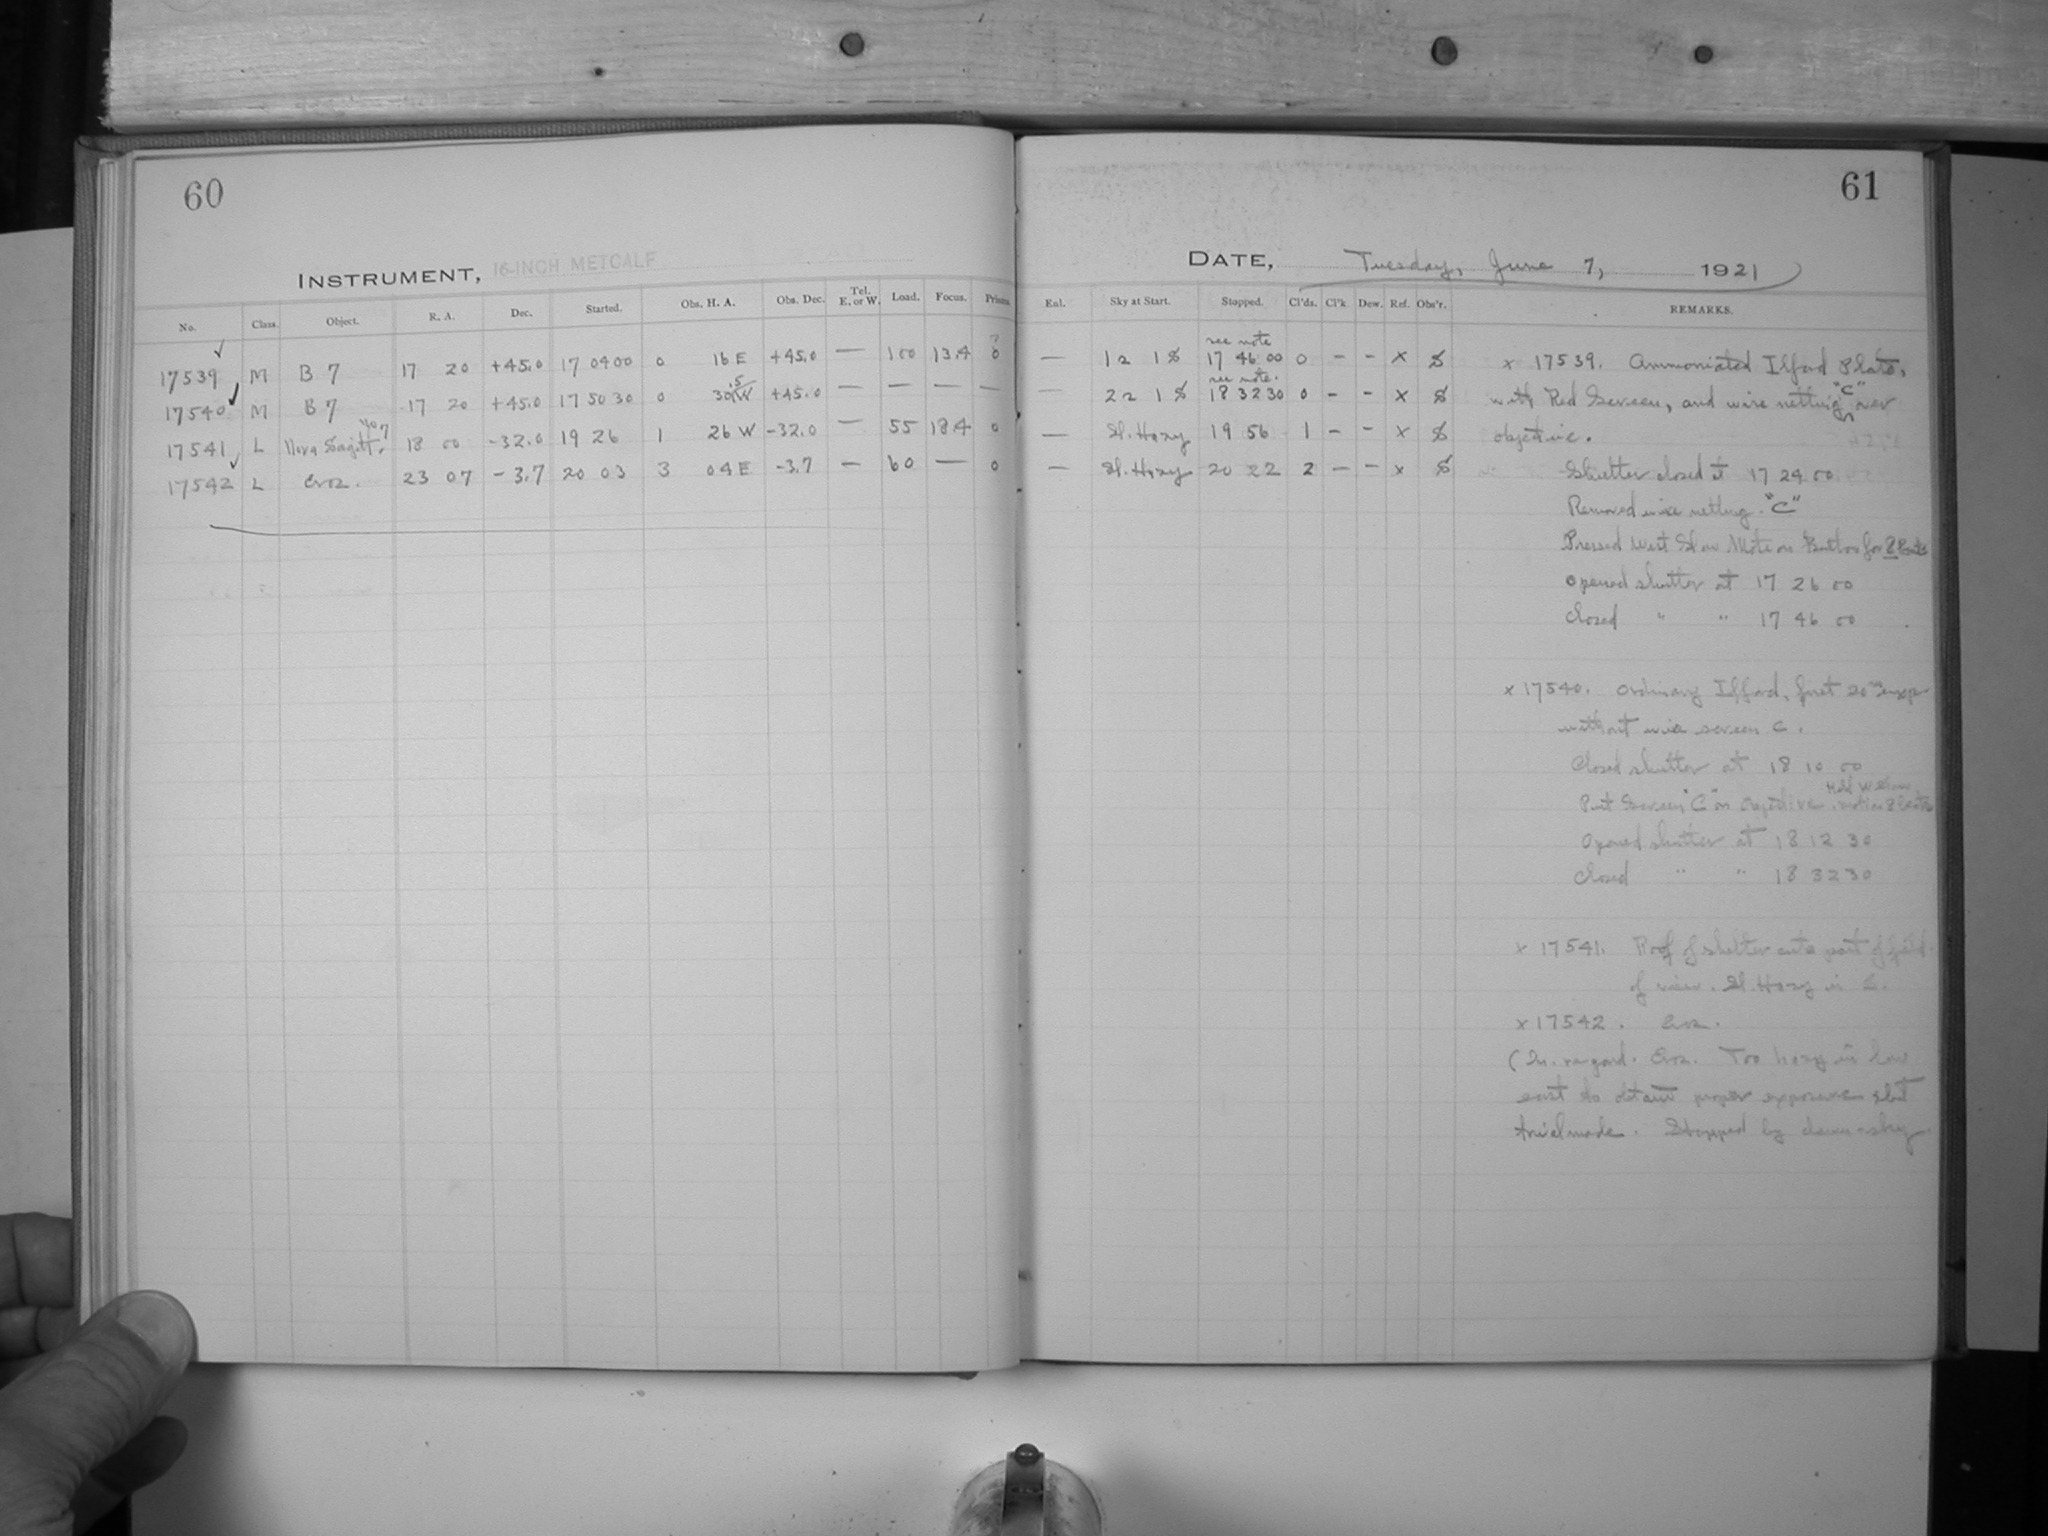 60
INSTRUMENT, 16-INCH METCALF
No. Class. Object. R. A. Dec. Started. Obs. H. A. Obs. Dec. Tel. E. or W. Load. Focus. Prisms.
17539 M B 7 17 20 +45.0 17 04 00 0 16 E +45.0 — 100 13.4 0
17540 M B 7 17 20 +45.0 17 50 30 0 30 W +45.0 — — — —
17541 L Nova Sagitt. No 7 18 00 -32.0 19 26 1 26 W -32.0 — 55 18.4 0
17542 L Eros. 23 07 -3.7 20 03 3 04 E -3.7 — 60 — 0
61
DATE, Tuesday, June 7, 1921
Enl. Sky at Start. Stopped. Cl'ds. Cl'k. Dew. Ref. Obs'r. REMARKS.
see note
— 12 1 S 17 46 00 0 - - x S
see note.
— 22 1 S 18 32 30 0 - - x S
— Sl. Hazy 19 56 1 - - x S
— Sl. Hazy 20 22 2 — — x S
x 17539. Ammoniated Ilford Plate,
with Red Screen, and wire netting "C" over
objective.
Shutter closed at 17 24 00
Removed wire netting "C"
Pressed West Slow Motion Button for 8
Opened shutter at 17 26 00
Closed " " 17 46 00
x 17540. Ordinary Ilford, first 20 m exp
without wire screen C.
Closed shutter at 18 10 00
Put Screen "C" on objective.
Opened shutter at 18 12 30
Closed " " 18 32 30
x 17541. Roof of shelter cuts part of field
of view. Sl. Hazy in S.
x 17542. Eros.
(In regard. Eros. Too hazy in low
east to obtain proper exposure but
trial made. Stopped by dawn sky.